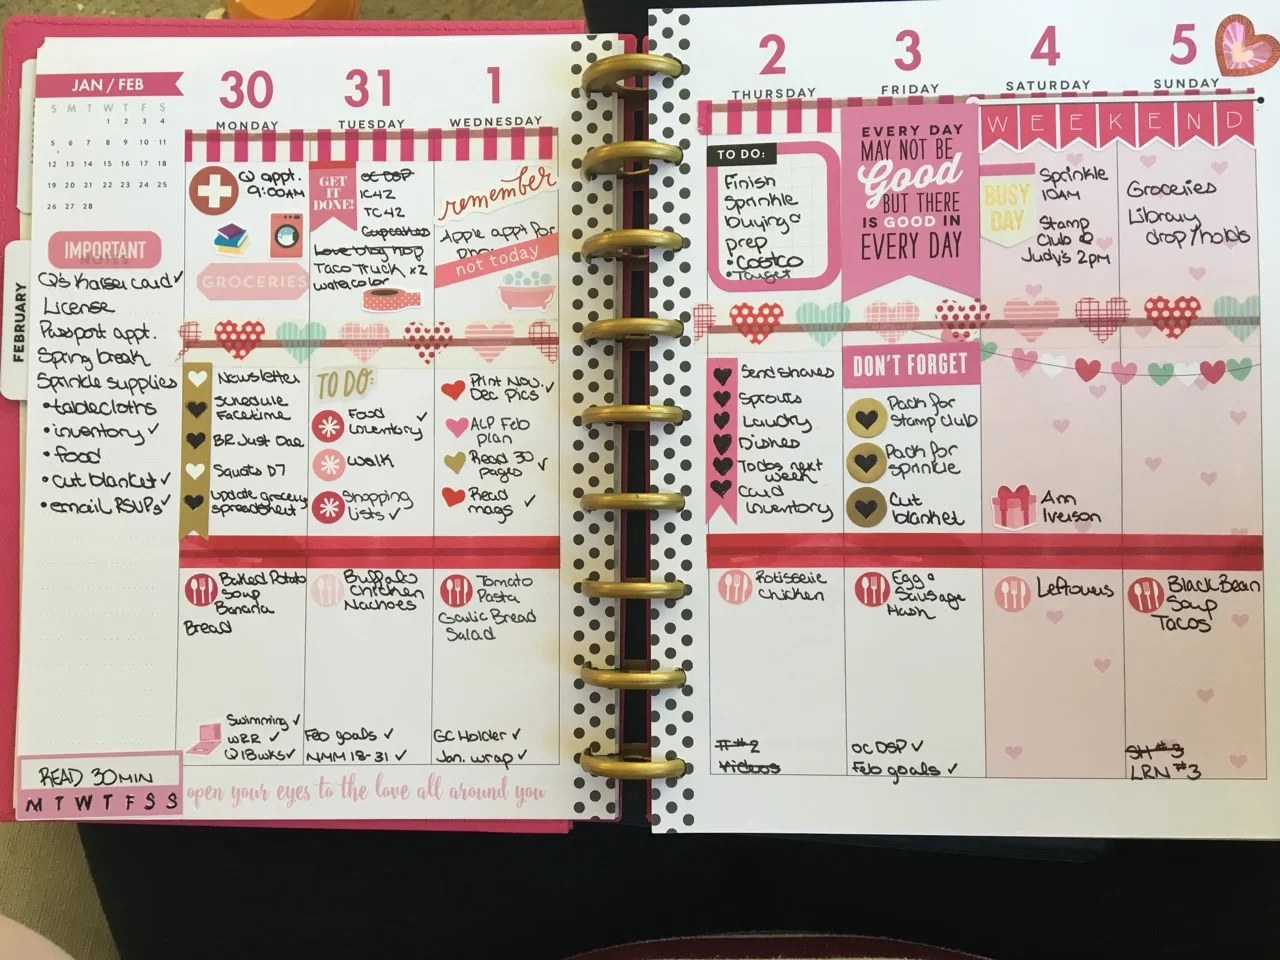 JAN / FEB
S M T W T F S
1 2 3 4
5 6 7 8 9 10 11
12 13 14 15 16 17 18
19 20 21 22 23 24 25
26 27 28
IMPORTANT
NOTES
Q's Kaiser card ✓
License
Passport appt.
Spring break
Sprinkle supplies
• tablecloths
• inventory ✓
• food
• cut blanket ✓
• email RSUPs ✓
READ 30 MIN
M T W T F S S
FEBRUARY
30
MONDAY
Q appt.
9:00AM
GROCERIES
Newsletter
Schedule
Facetime
BR Just Dae
Squats D7
Update grocery
spreadsheet
Baked Potato
Soup
Banana
Bread
Swimming ✓
WRR ✓
Q18wks ✓
31
TUESDAY
GET
IT
DONE!
OC DSP
IC42
TC42
Cupcakes
Love blog hop
Taco Truck x2
watercolor
TO DO:
Food
Inventory ✓
Walk
Shopping
Lists ✓
Buffalo
Chicken
Nachoes
Feb goals ✓
NMM 18-31 ✓
1
WEDNESDAY
remember
Apple appt for
not today
Print Nov.
Dec Pics ✓
ALP Feb
plan
Read 30
pages ✓
Read
mags ✓
Tomato
Pasta
Garlic Bread
Salad
GC Holder ✓
Jan. wrap ✓
open your eyes to the love all around you
2
THURSDAY
TO DO:
Finish
Sprinkle
buying &
prep
• Costco
• Target
Send shares
Sprouts
Laundry
Dishes
Todos next
week
Card
Inventory
Rotisserie
Chicken
TT #2
Videos
3
FRIDAY
EVERY DAY
MAY NOT BE
Good
BUT THERE
IS GOOD IN
EVERY DAY
DON'T FORGET
Pack for
Stamp Club
Pack for
sprinkle
Cut
blanket
Egg &
Sausage
Hash
OC DSP ✓
Feb goals ✓
4
SATURDAY
WEEKEND
BUSY
DAY
Sprinkle
10AM
Stamp
Club @
Judy's 2PM
Am
Iverson
Leftovers
5
SUNDAY
Groceries
Library
drop/holds
Black Bean
Soup
Tacos
SH #3
LRN #3